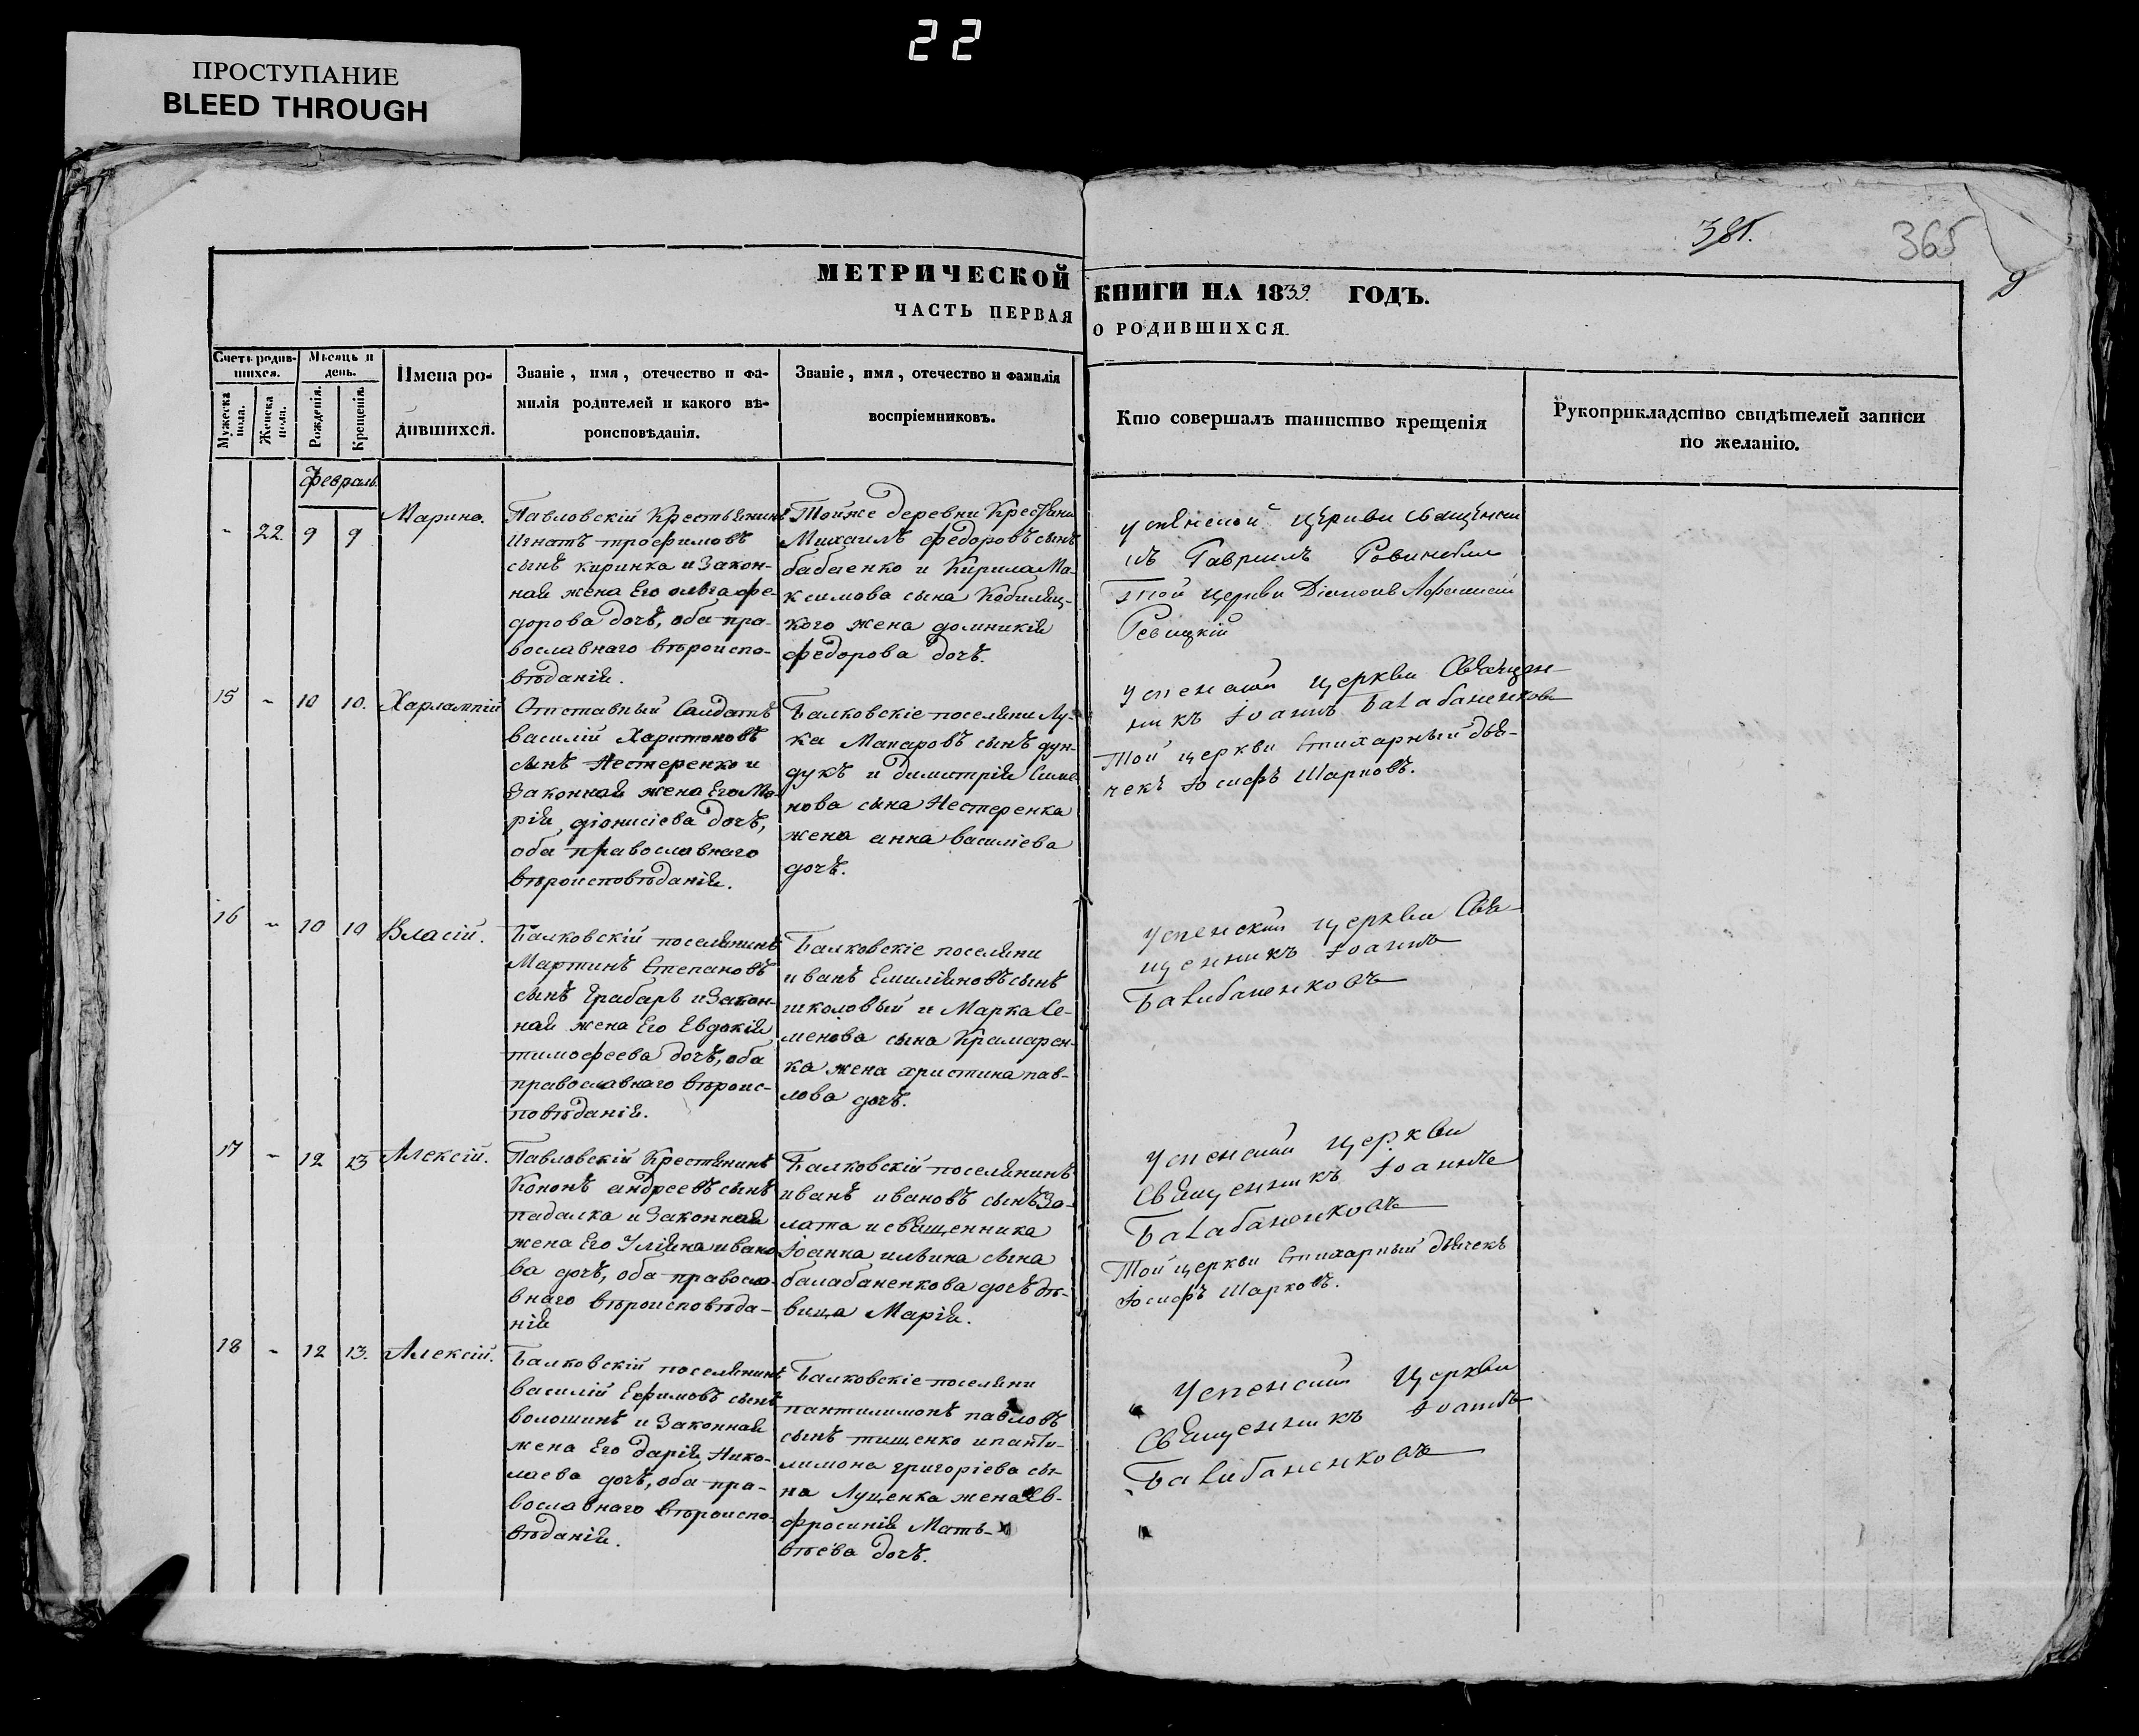 22
ПРОСТУПАНИЕ
BLEED THROUGH
365
МЕТРИЧЕСКОЙ КНИГИ НА 1839. ГОДЪ.
ЧАСТЬ ПЕРВАЯ О РОДИВШИХСЯ.
Счетъ родив-
шихся.
Мужеска
пола.
Женска
пола.
Мѣсяцъ и
день.
Рожденія.
Крещенія.
Имена ро-
дившихся.
Званіе, имя, отечество и фа-
милія родителей и какого вѣ-
роисповѣданія.
Званіе, имя, отечество и фамилія
воспріемниковъ.
Кто совершалъ таинство крещенія
Рукоприкладство свидѣтелей записи
по желанію.
Февраль
- 22. 9 9 Марина.
Павловскій Крестьянинъ
Игнатъ трофимовъ
сынъ киринка и Закон-
ная жена Его ольга фе-
дорова дочь, оба пра-
вославнаго вѣроиспо-
вѣданія.
Тойже деревни Крестяни
Михаилъ федоровъ сынъ
бабаенко и Кирила Ма-
ксимова сына Кобиляц-
кого жена домникія
федорова дочь.
Успенской церкви священни
къ Гавриилъ
Той церкви Діаконъ Афанасій
Ревицкій
15 - 10 10. Харлампій
Отставный Салдатъ
василій Харитоновъ
сынъ Нестеренко и
Законная жена Его Ма-
рія діонисіева дочь,
оба православнаго
вѣроисповѣданія.
Балковскіе поселяни Лу-
ка Макаровъ сынъ дун-
дукъ и димитрія Симо
нова сына Нестеренка
жена анна василіева
дочь.
Успенской церкви Священ-
никъ Іоаннъ Балабаненковъ
Той церкви Стихарный дья-
чекъ Іосифъ Шарковъ.
16 - 10 10 Власій.
Балковскій поселянинъ
Мартинъ Степановъ
сынъ Грабарь и Закон-
ная жена Его Евдокія
тимофеева дочь, оба
православнаго вѣроис-
повѣданія.
Балковскіе поселяни
иванъ Емиліяновъ сынъ
школовый и Марка Се-
менова сына Крамарен-
ка жена христина пав-
лова дочь.
Успенской церкви Свя-
щенникъ Іоаннъ
Балабаненковъ
17 - 12 13 Алексій.
Павловскій Крестянинъ
Кононъ андреевъ сынъ
падалка и Законная
жена Его Уліяна ивано
ва дочь, оба правосла-
внаго вѣроисповѣда-
нія
Балковскій поселянинъ
иванъ ивановъ сынъ За-
лата и священника
Іоанна ильина сына
балабаненкова дочь дѣ-
вица Марія.
Успенской церкви
Священникъ Іоаннъ
Балабаненковъ
Той церкви Стихарный дьячекъ
Іосифъ Шарковъ.
18 - 12 13. Алексій.
Балковскій поселянинъ
василій Ефимовъ сынъ
волошинъ и Законная
жена Его дарія Нико-
лаева дочь, оба пра-
вославнаго вѣроиспо-
вѣданія.
Балковскіе поселяни
пантилимонъ павловъ
сынъ тищенко и панти-
лимона григоріева сы-
на Луценка жена Ев-
фросинія Мать-
вѣева дочь.
Успенской Церкви
Священникъ Іоаннъ
Балабаненковъ